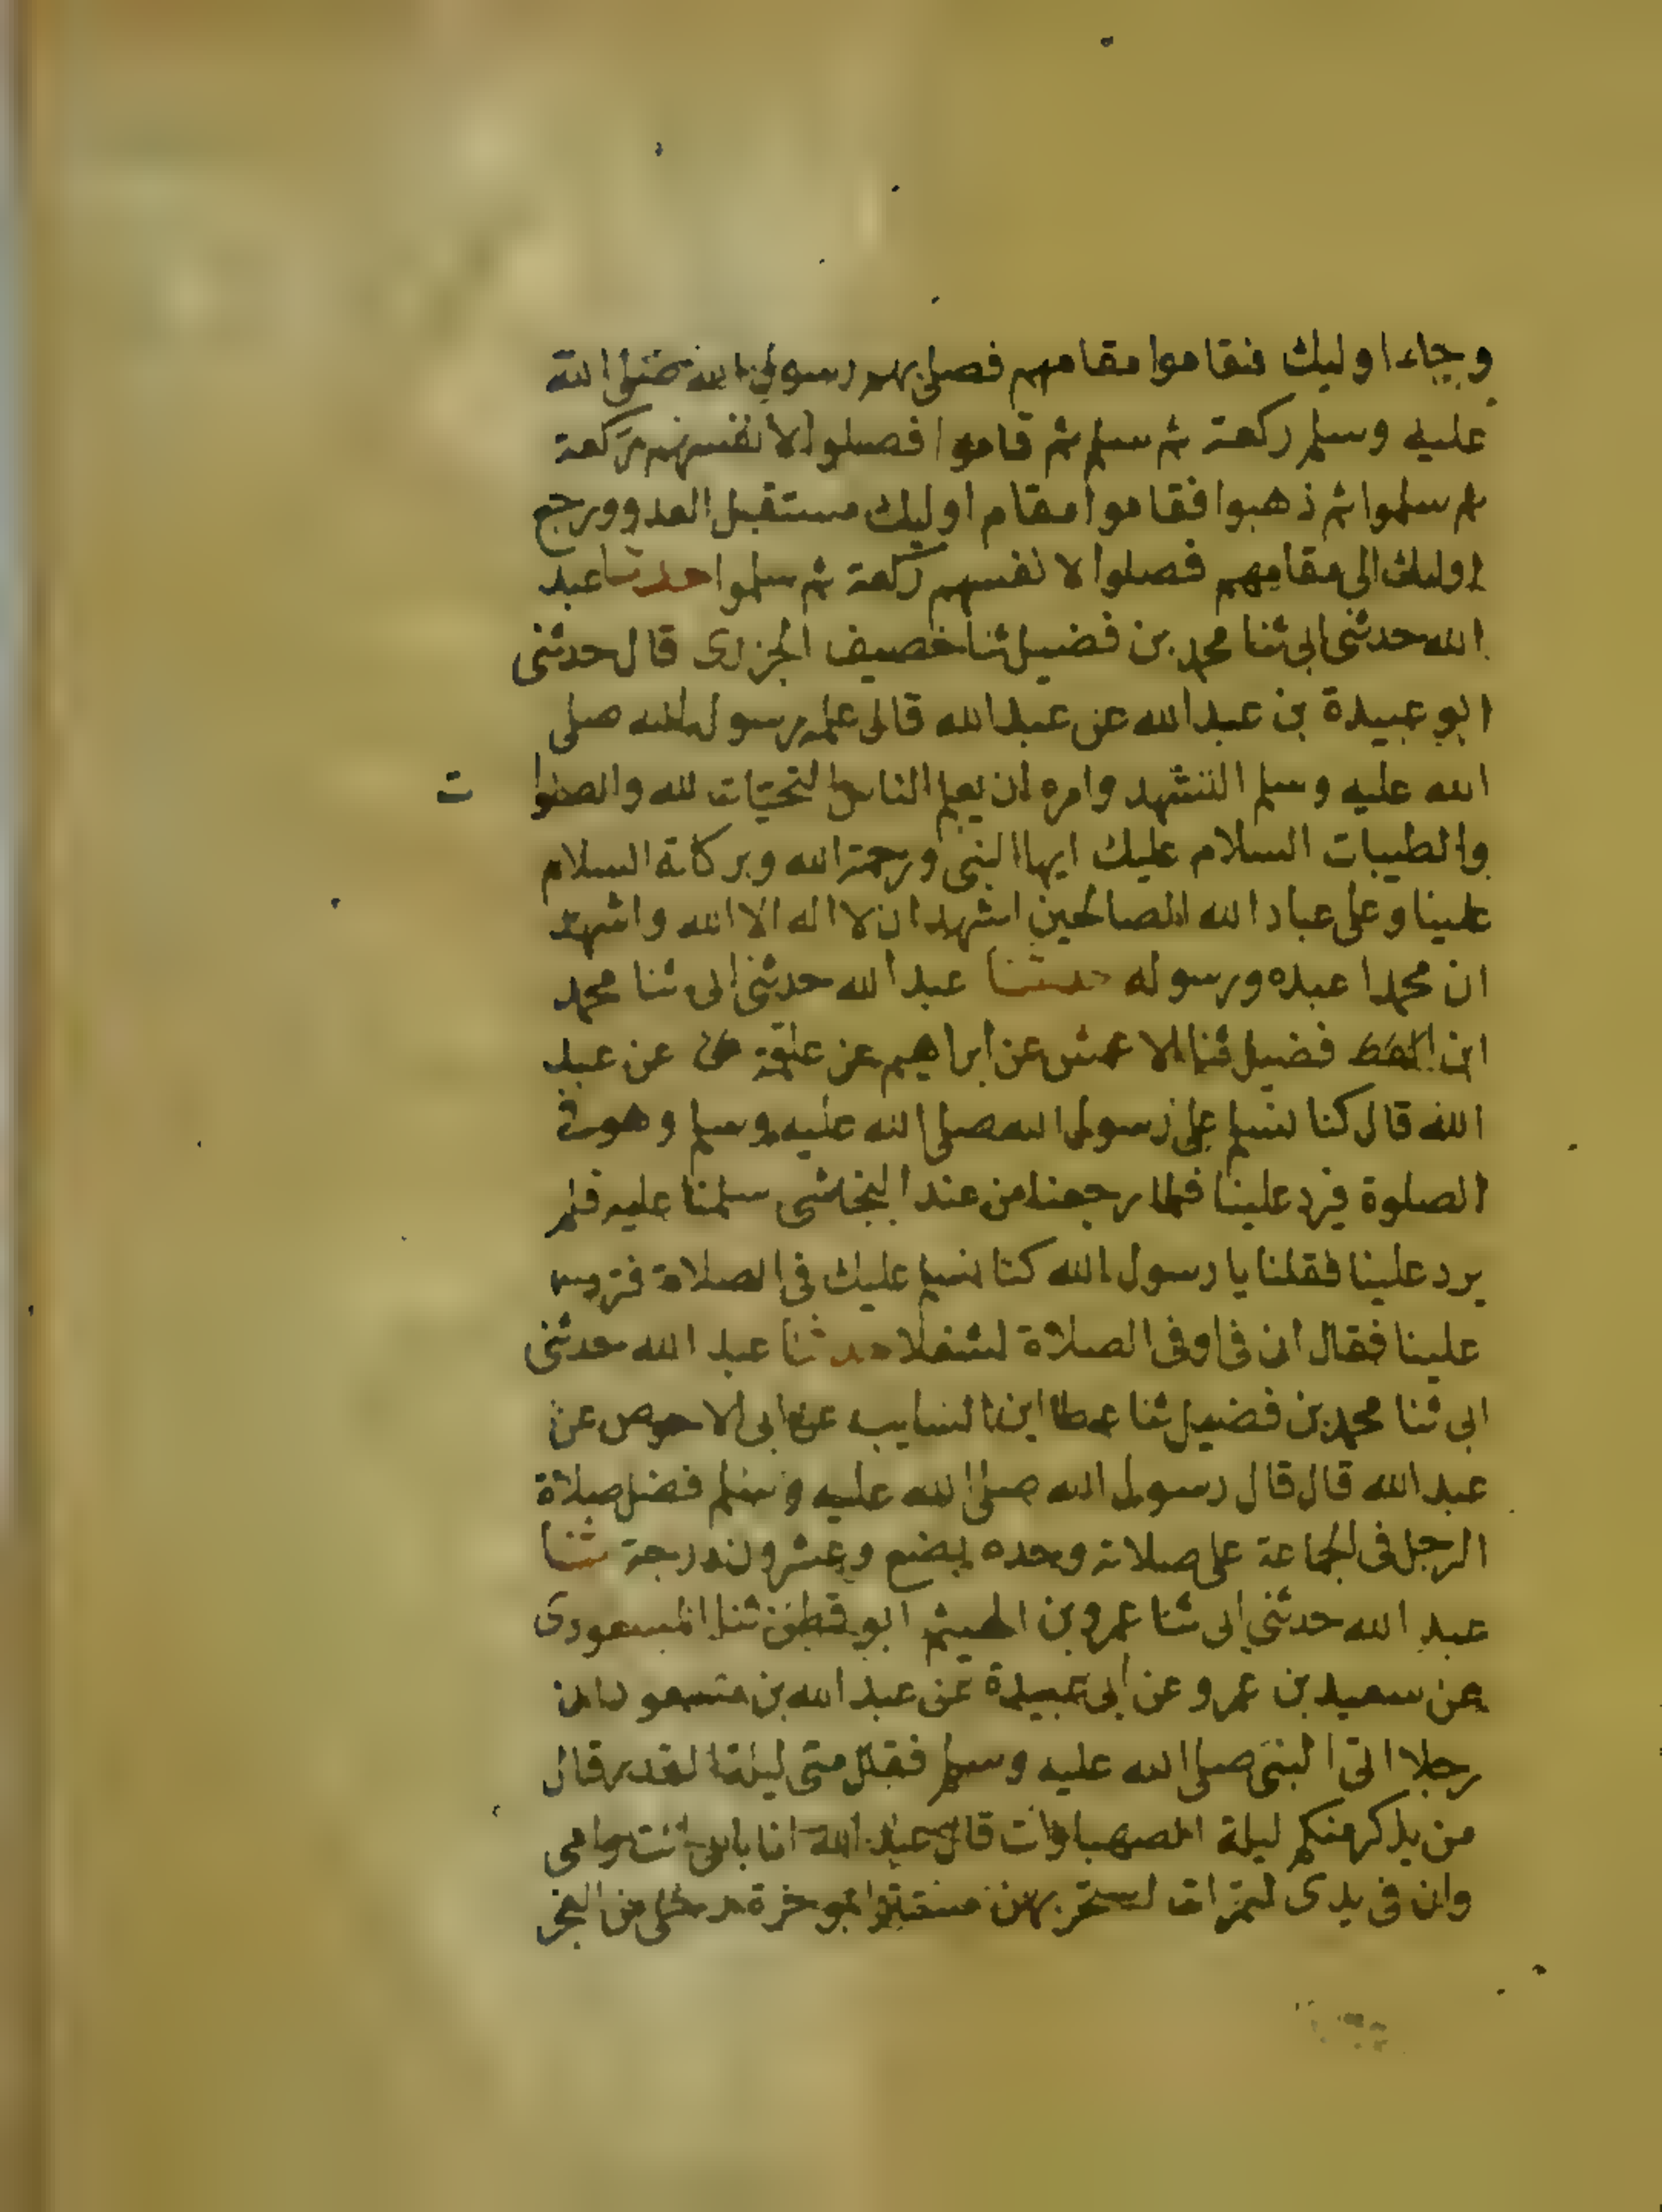 وجاء اوليك فقاموا مقامهم فصلى بهم رسول الله صلى الله
عليه وسلم ركعة ثم سلم ثم قاموا فصلوا لانفسهم ركعة
ثم سلموا ثم ذهبوا فقاموا مقام اوليك مستقبل العدو ورجع
اوليك الى مقامهم فصلوا لانفسهم ركعة ثم سلموا حدثنا عبد
الله حدثنى ابى ثنا محمد بن فضيل ثنا خصيف الجزرى قال حدثنى
ابو عبيدة بن عبد الله عن عبد الله قال علمه رسول الله صلى
الله عليه وسلم التشهد وامره ان يعلم الناس التحيات لله والصلوا ت
والطيبات السلام عليك ايها النبى ورحمة الله وبركاته السلام
علينا وعلى عباد الله الصالحين اشهد ان لا اله الا الله واشهد
ان محمدا عبده ورسوله حدثنا عبد الله حدثنى ابى ثنا محمد
ابن فضيل ثنا الاعمش عن ابراهيم عن علقمة عن عبد
الله قال كنا نسلم على رسول الله صلى الله عليه وسلم وهو فى
الصلوة فيرد علينا فلما رجعنا من عند النجاشى سلمنا عليه فلم
يرد علينا فقلنا يا رسول الله كنا نسلم عليك فى الصلاة فترد
علينا فقال ان فى اوفى الصلاة لشغلا حدثنا عبد الله حدثنى
ابى ثنا محمد بن فضيل ثنا عطا ابن السايب عن ابى الاحوص عن
عبد الله قال قال رسول الله صلى الله عليه وسلم فضل صلاة
الرجل فى الجماعة على صلاته وحده بضع وعشرون درجة ثنا
عبد الله حدثنى ابى ثنا عمرو بن الهيثم ابو قطن ثنا المسعودى
عن سعيد بن عمرو عن ابى عبيدة عن عبد الله بن مسعود ان
رجلا اتى النبى صلى الله عليه وسلم فقال متى ليلة القدر قال
من يذكر منكم ليلة الصهباوات قال عبد الله انا بابى انت وامى
وان فى يدى لتمرات استحر بهن مستترا بموخرة رحلى من الفجر